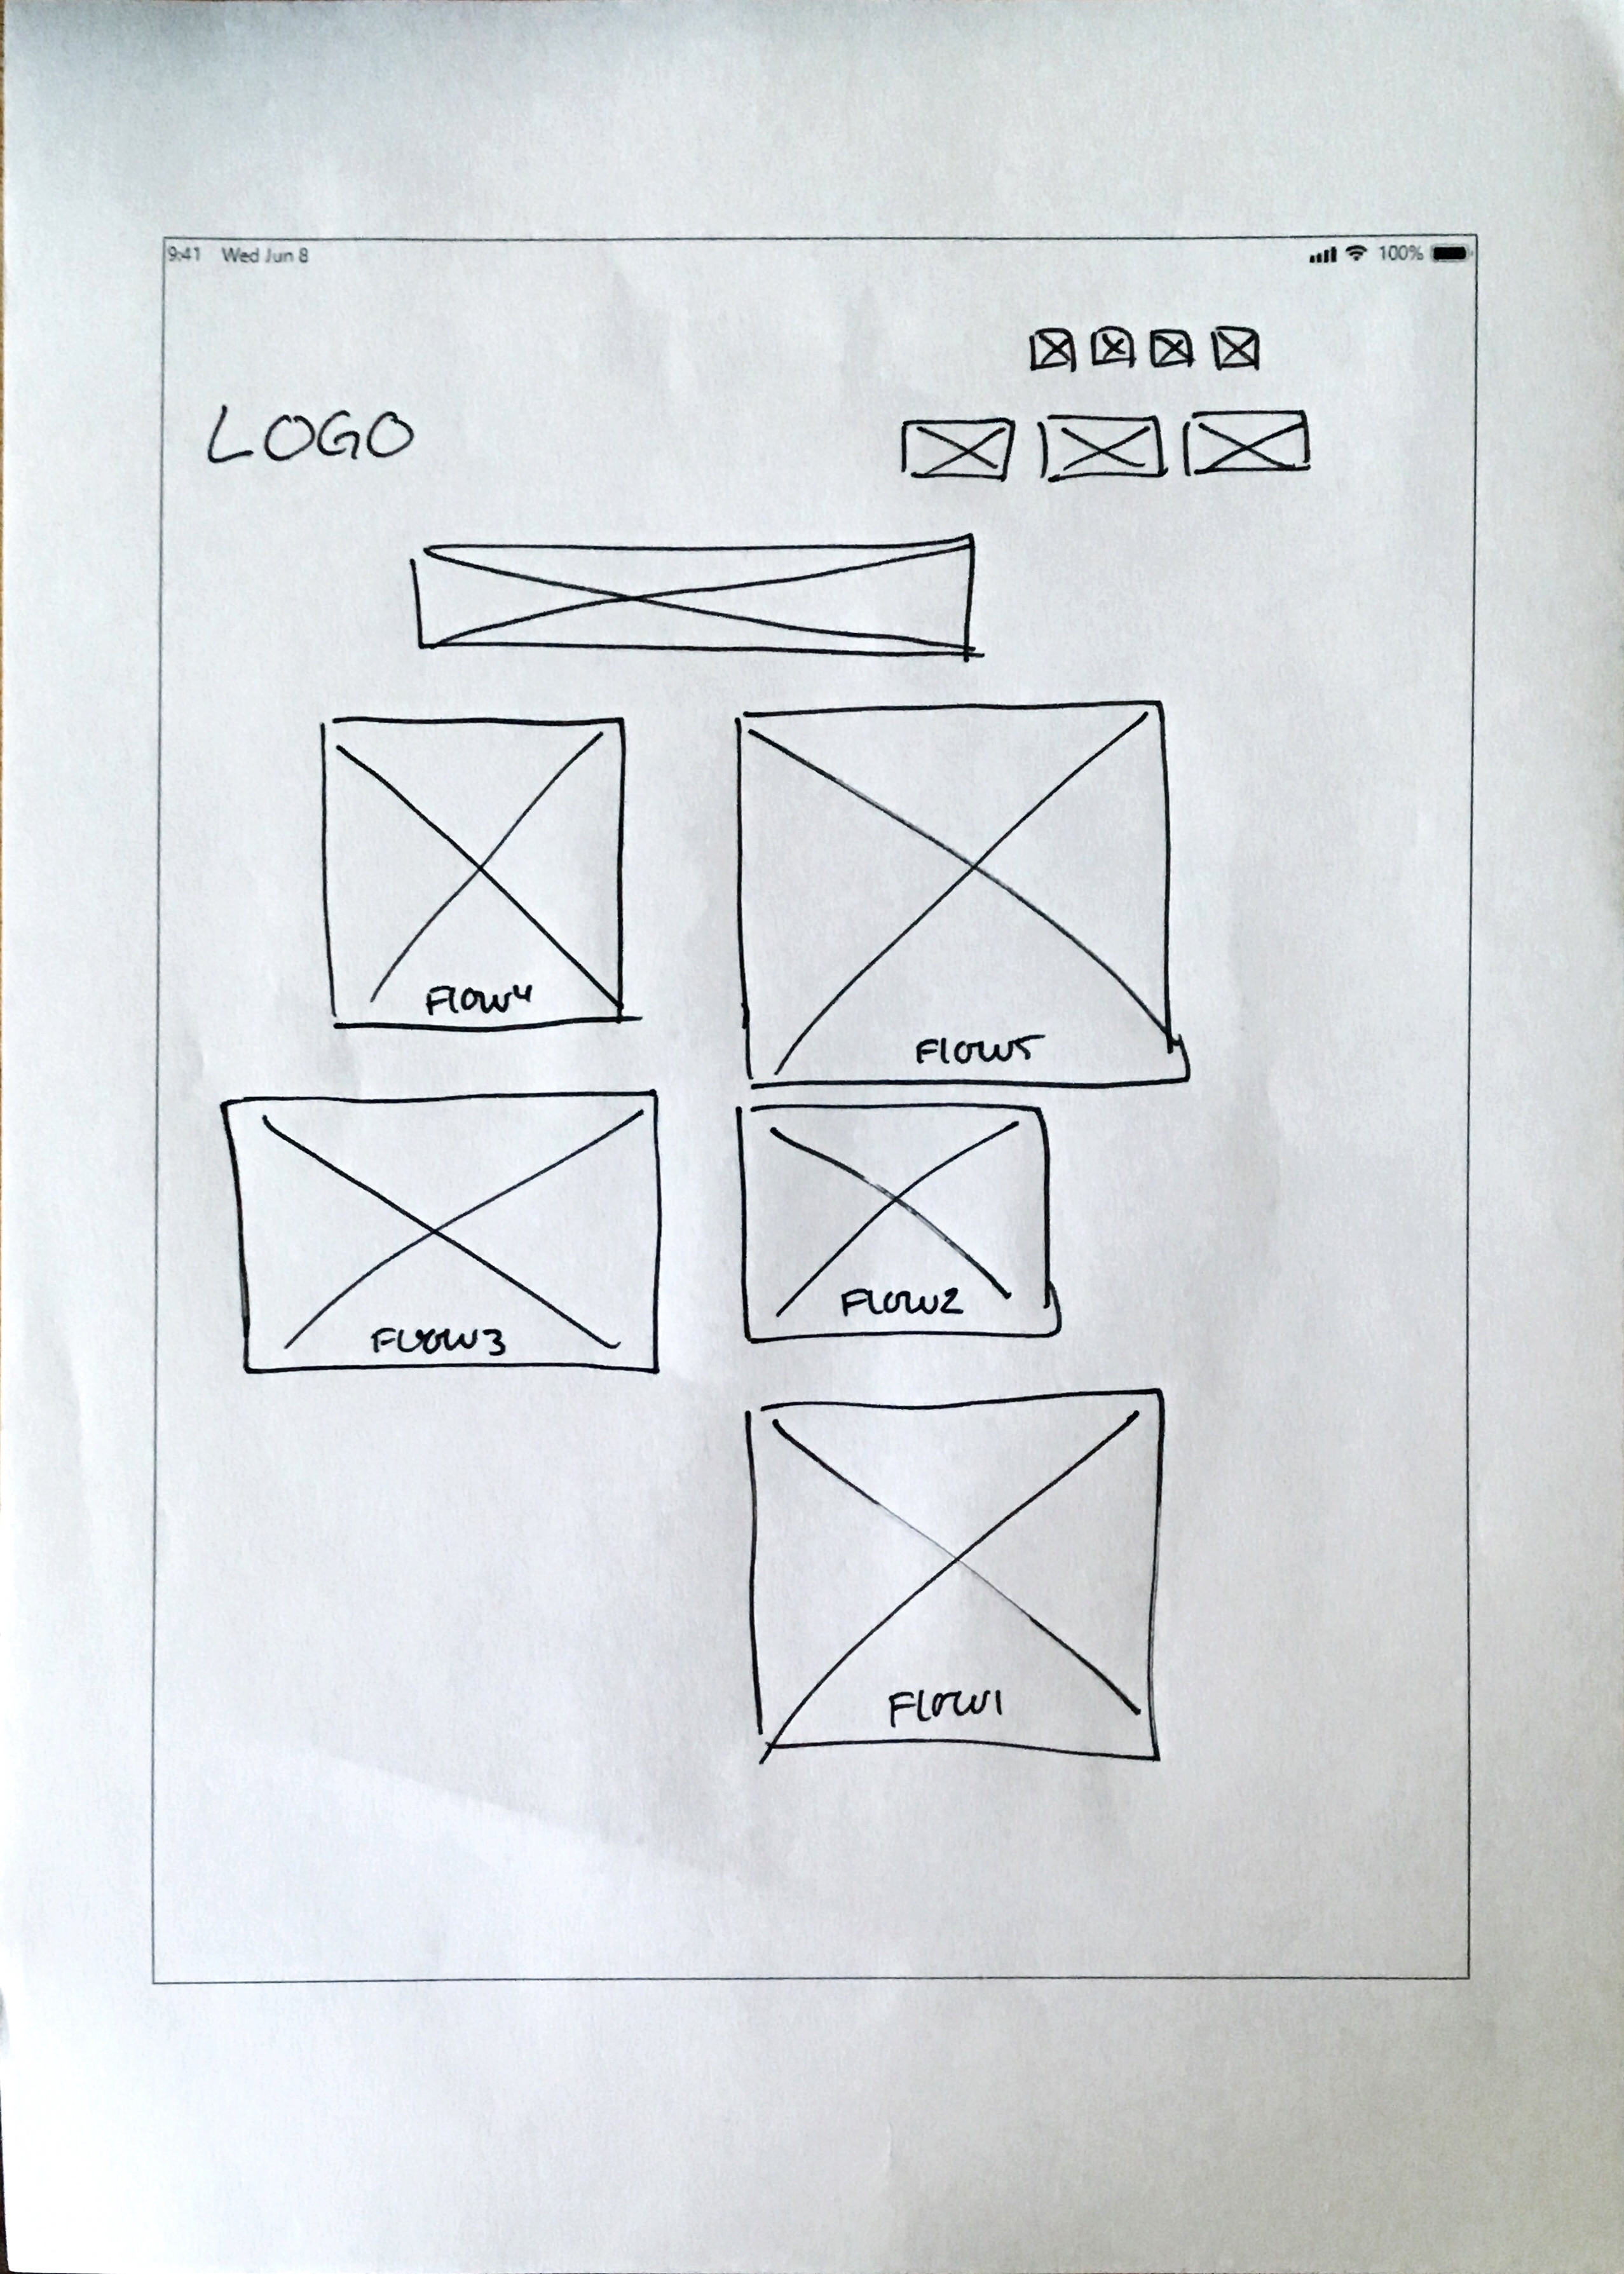 9:41 Wed Jun 8 100%
LOGO
FLOW4
FLOW5
FLOW3
FLOW2
FLOW1